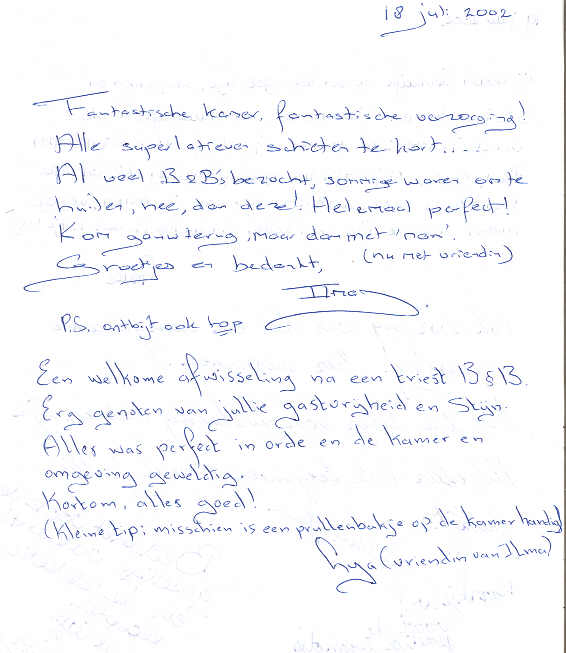 18 juli 2002
Fantastische kamer, fantastische verzorging!
Alle superlatieven schieten te kort....
Al veel B&B's bezocht, sommige waren om te
huilen, nee, dan deze! Helemaal perfect!
Kom gauw terug, maar dan met 'man'.
Groetjes en bedankt, (nu met vriendin)
Ilma
P.S. ontbijt ook top
Een welkome afwisseling na een triest B&B.
Erg genoten van jullie gastvrijheid en Stijn.
Alles was perfect in orde en de kamer en
omgeving geweldig.
Kortom, alles goed!
(kleine tip; misschien is een prullenbakje op de kamer handig)
Lya (vriendin van Ilma)